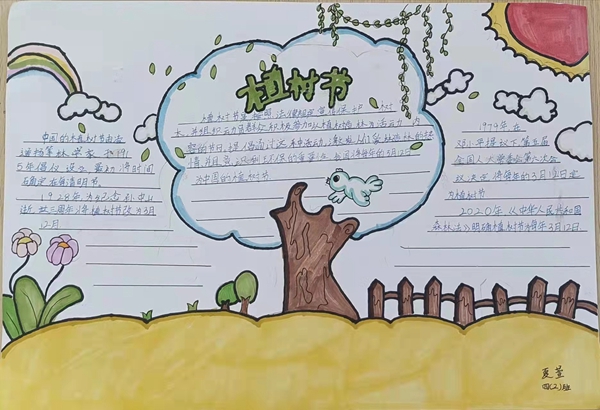 植树节
植树节是按照法律规定宣传保护树
木，并组织动员群众积极参加以植树造林为活动内
容的节日，提倡通过这种活动，激发人们爱林造林的热
情并且意识到环保的重要性，中国将每年的3月12日
为中国的植树节
中国的植树节由凌
道扬等林学家
5年倡议设立，最初将时间
确定在每年清明节。
1928年，为纪念孙中山
逝世三周年将植树节改为3月
12月
1979年，在
邓小平提议下，第五届
全国人大常委会第六次会
议决定将每年的3月12日定
为植树节
2020年《中华人民共和国
森林法》明确植树节为每年3月12日
夏萱
四(2)班